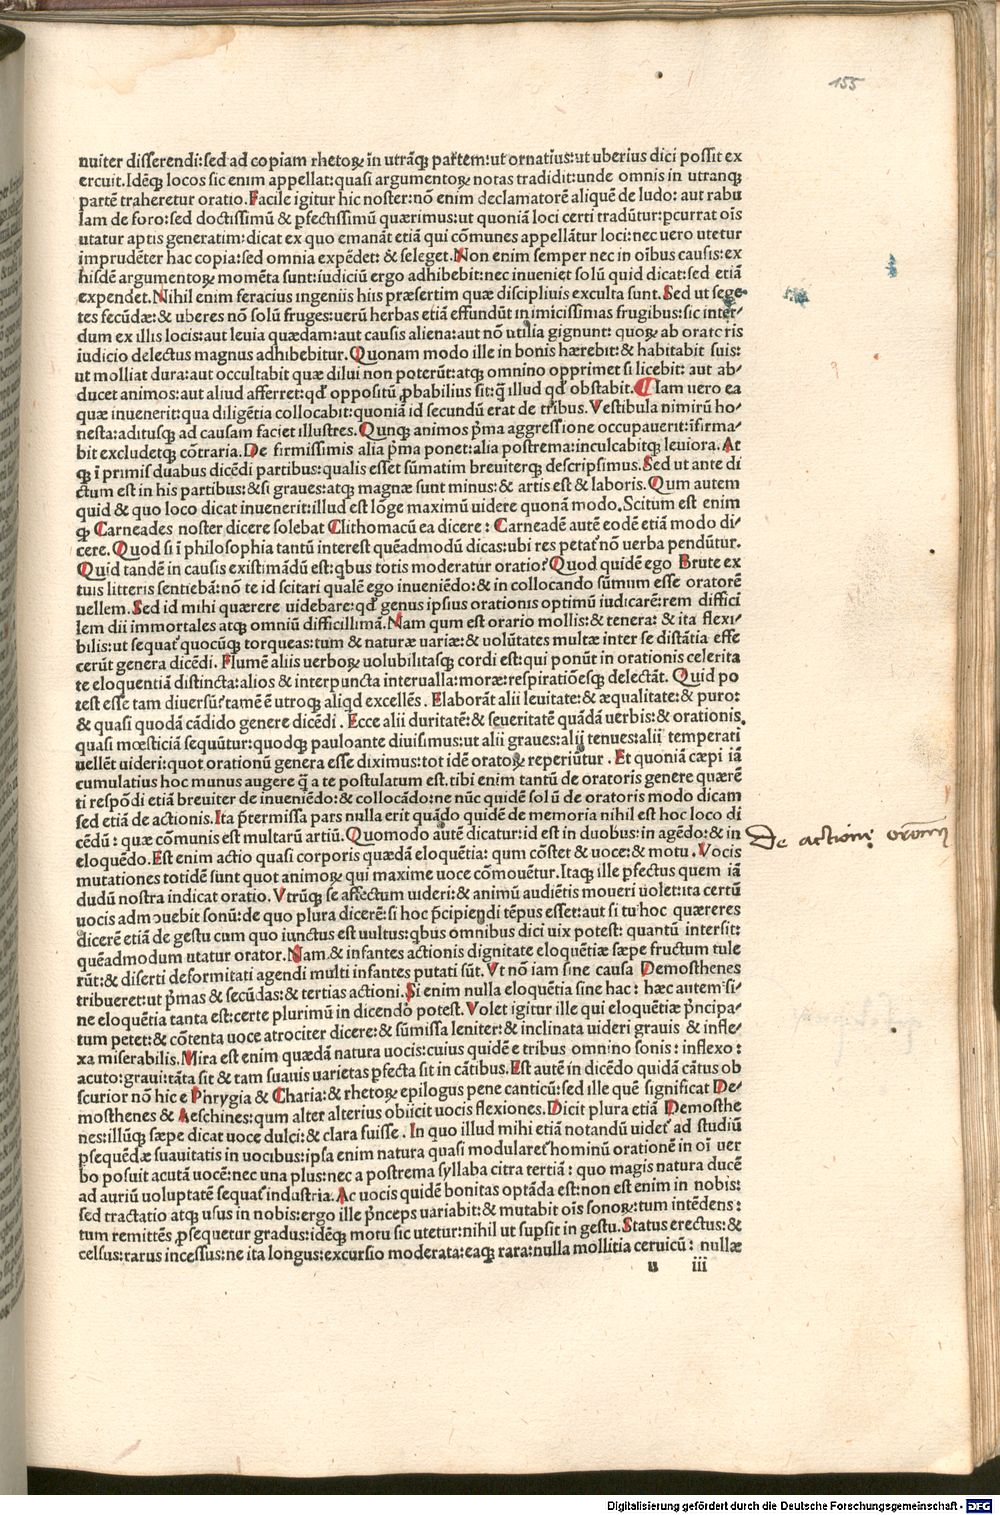 155
nuiter disserendi:sed ad copiam rhetoꝝ in utrãqꝫ partem:ut ornatius:ut uberius dici possit ex
ercuit.Idẽqꝫ locos sic enim appellat:quasi argumentoꝝ notas tradidit:unde omnis in utranqꝫ
partẽ traheretur oratio.Facile igitur hic noster:nõ enim declamatorẽ aliquẽ de ludo: aut rabu
lam de foro:sed doctissimũ & ꝑfectissimũ quærimus:ut quoniã loci certi tradũtur:ꝑcurrat oĩs
utatur aptis generatim:dicat ex quo emanãt etiã qui cõmunes appellãtur loci:nec uero utetur
imprudẽter hac copia:sed omnia expẽdet: & seleget.Non enim semper nec in oĩbus causis:ex
hisdẽ argumentoꝝ momẽta sunt:iudiciũ ergo adhibebit:nec inueniet solũ quid dicat:sed etiã
expendet.Nihil enim feracius ingeniis hiis præsertim quæ disciplinis exculta sunt.Sed ut sege
tes fecũdæ:& uberes nõ solũ fruges:uerũ herbas etiã effundũt inimicissimas frugibus:sic inter/
dum ex illis locis:aut leuia quædam:aut causis aliena:aut nõ utilia gignunt: quoꝝ ab oratoris
iudicio delectus magnus adhibebitur.Quonam modo ille in bonis hærebit:& habitabit suis:
ut molliat dura:aut occultabit quæ dilui non poterũt:atqꝫ omnino opprimet si licebit: aut ab/
ducet animos:aut aliud afferret:qd̓ oppositũ ꝓbabilius sit:q̃ illud qd̓ obstabit. Iam uero ea
quæ inuenerit:qua diligẽtia collocabit:quoniã id secundũ erat de tribus.Vestibula nimirũ ho/
nesta:aditusqꝫ ad causam faciet illustres.Qunqꝫ animos p̃ma aggressione occupauerit:ĩfirma/
bit excludetqꝫ cõtraria.De firmissimis alia p̃ma ponet:alia postrema:inculcabitqꝫ leuiora.At
qꝫ ĩ primis duabus dicẽdi partibus:qualis esset sũmatim breuiterqꝫ descripsimus.Sed ut ante di
ctum est in his partibus:&si graues:atqꝫ magnæ sunt minus:& artis est & laboris.Qum autem
quid & quo loco dicat inuenerit:illud est lõge maximũ uidere quonã modo.Scitum est enim
qꝫ Carneades noster dicere solebat Clithomacũ ea dicere: Carneadẽ autẽ eodẽ etiã modo di/
cere.Quod si ĩ philosophia tantũ interest quẽadmodũ dicas:ubi res petat᷑ nõ uerba pendũtur.
Quid tandẽ in causis existimãdũ est:qbus totis moderatur oratio?Quod quidẽ ego Brute ex
tuis litteris sentiebã:nõ te id scitari qualẽ ego inueniẽdo:& in collocando sũmum esse oratorẽ
uellem.Sed id mihi quærere uidebare:qd̓ genus ipsius orationis optimũ iudicarẽ:rem diffici
lem dii immortales atqꝫ omniũ difficillimã.Nam qum est orario mollis:& tenera: & ita flexi/
bilis:ut sequat᷑ quocũqꝫ torqueas:tum & naturæ uariæ:& uolũtates multæ inter se distãtia effe
cerũt genera dicẽdi. Flumẽ aliis uerboꝝ uolubilitasqꝫ cordi est:qui ponũt in orationis celerita
te eloquentiã distincta:alios & interpuncta interualla:moræ:respiratiõesqꝫ delectãt. Quid po
test esse tam diuersũ?tamẽ ẽ utroqꝫ aliqd excellẽs. Elaborãt alii leuitate:& æqualitate:& puro:
& quasi quodã cãdido genere dicẽdi . Ecce alii duritatẽ:& seueritatẽ quãdã uerbis:& orationis
quasi mœsticiã sequũtur:quodqꝫ pauloante diuisimus:ut alii graues:alii tenues:alii temperati
uellẽt uideri:quot orationũ genera esse diximus:tot idẽ oratoꝝ reperiũtur . Et quoniã cæpi iã
cumulatius hoc munus augere q̃ a te postulatum est.tibi enim tantũ de oratoris genere quærẽ
ti respõdi etiã breuiter de inueniẽdo:& collocãdo:ne nũc quidẽ solũ de oratoris modo dicam
sed etiã de actionis.Ita p̃termissa pars nulla erit quãdo quidẽ de memoria nihil est hoc loco di
cẽdũ : quæ cõmunis est multarũ artiũ.Quomodo autẽ dicatur:id est in duobus:in agẽdo:& in
eloquẽdo.Est enim actio quasi corporis quædã eloquẽtia: qum cõstet & uoce:& motu.Vocis
mutationes totidẽ sunt quot animoꝝ qui maxime uoce cõmouẽtur.Itaqꝫ ille ꝑfectus quem iã
dudũ nostra indicat oratio.Vtrũqꝫ se affectum uideri:& animũ audiẽtis moueri uolet:ita certũ
uocis admouebit sonũ:de quo plura dicerẽ:si hoc p̃cipiẽdi tẽpus esset:aut si tu hoc quæreres
dicerẽ etiã de gestu cum quo iunctus est uultus:qbus omnibus dici uix potest: quantũ intersit:
quẽadmodum utatur orator.Nam & infantes actionis dignitate eloquẽtiæ sæpe fructum tule
rũt:& diserti deformitati agendi multi infantes putati sũt.Vt nõ iam sine causa Demosthenes
tribueret:ut p̃mas & secũdas:& tertias actioni.Si enim nulla eloquẽtia sine hac: hæc autem si/
ne eloquẽtia tanta est:certe plurimũ in dicendo potest.Volet igitur ille qui eloquẽtiæ p̃ncipa/
tum petet:& cõtenta uoce atrociter dicere:& sũmissa leniter:& inclinata uideri grauis & infle/
xa miserabilis.Mira est enim quædã natura uocis:cuius quidẽ e tribus omnino sonis: inflexo:
acuto:graui:tãta sit & tam suauis uarietas ꝑfecta sit in cãtibus.Est autẽ in dicẽdo quidã cãtus ob
scurior nõ hic e Phrygia & Charia:& rhetoꝝ epilogus pene canticũ:sed ille quẽ significat De/
mosthenes & Aeschines:qum alter alterius obiicit uocis flexiones.Dicit plura etiã Demosthe
nes:illũqꝫ sæpe dicat uoce dulci:& clara fuisse . In quo illud mihi etiã notandũ uidet᷑ ad studiũ
ꝑsequẽdæ suauitatis in uocibus:ipsa enim natura quasi modularet᷑ hominũ orationẽ in oĩ uer
bo posuit acutã uocẽ:nec una plus:nec a postrema syllaba citra tertiã: quo magis natura ducẽ
ad auriũ uoluptatẽ sequat᷑ industria.Ac uocis quidẽ bonitas optãda est:non est enim in nobis:
sed tractatio atqꝫ usus in nobis:ergo ille p̃nceps uariabit:& mutabit oĩs sonoꝝ:tum intẽdens:
tum remittẽs ꝑsequetur gradus:idẽqꝫ motu sic utetur:nihil ut supsit in gestu.Status erectus:&
celsus:rarus incessus:ne ita longus:excursio moderata:eaqꝫ rara:nulla mollitia ceruicũ: nullæ
u iii
De actione
Digitalisierung gefördert durch die Deutsche Forschungsgemeinschaft - DFG